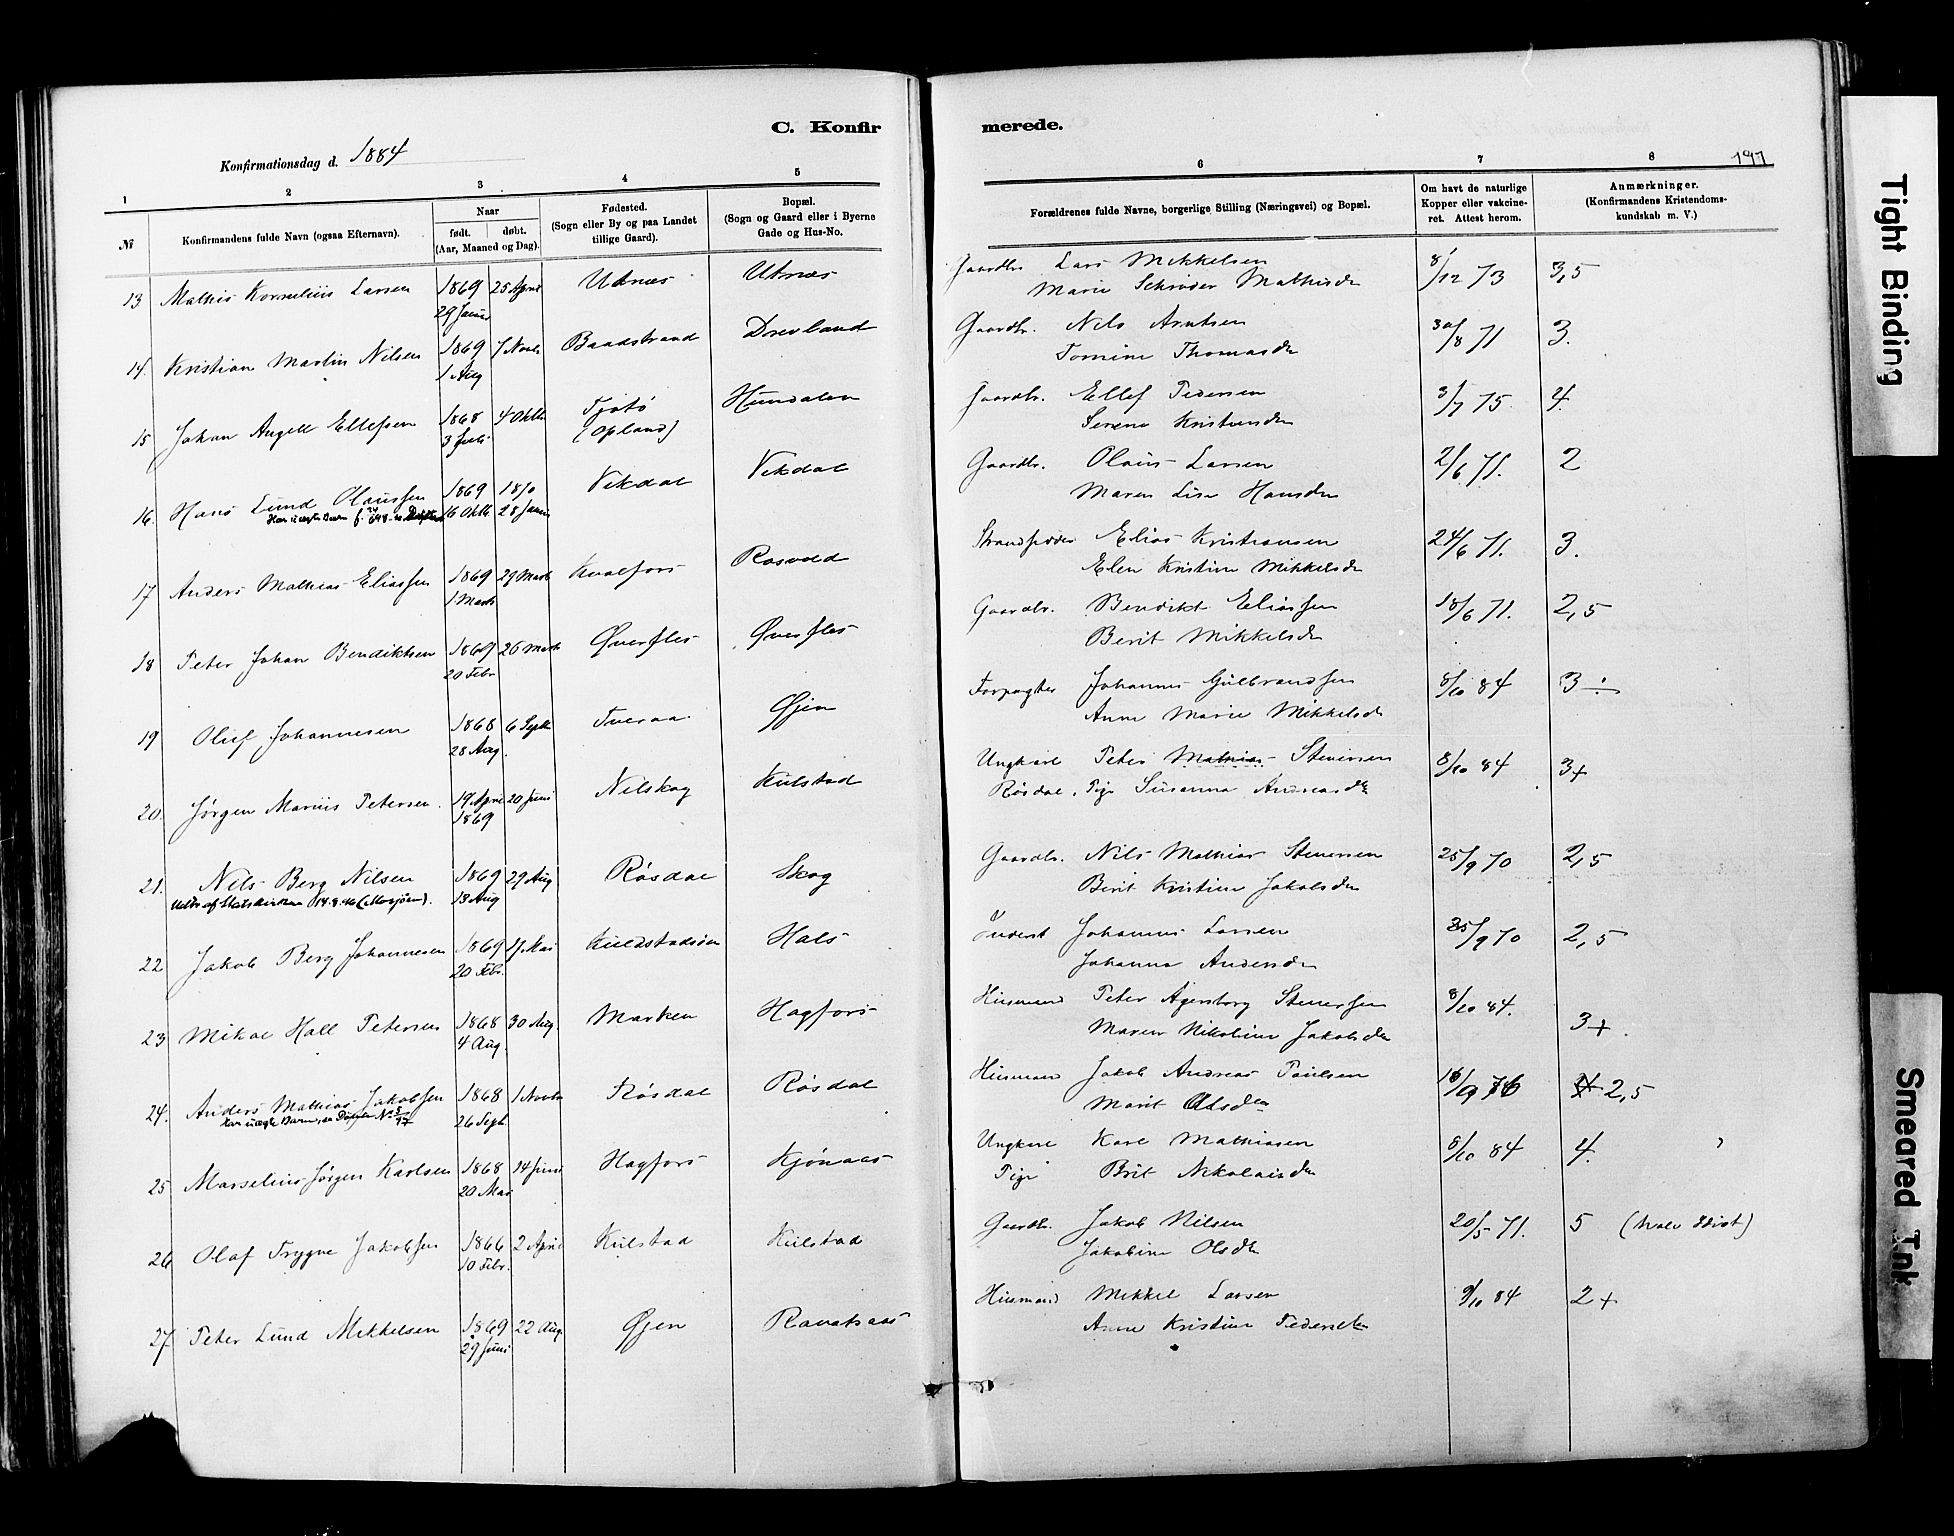 C. Konfirmerede.
Konfirmationsdag d. 1884
191
1 2 3 4 5 6 7 8
№
Konfirmandens fulde Navn (ogsaa Efternavn).
Naar
født. døbt.
(Aar, Maaned og Dag).
Fødested.
(Sogn eller By og paa Landet
tillige Gaard).
Bopæl.
(Sogn og Gaard eller i Byerne
Gade og Hus-No.
Forældrenes fulde Navne, borgerlige Stilling (Næringsvei) og Bopæl.
Om havt de naturlige
Kopper eller vakcine-
ret. Attest herom.
Anmærkninger.
(Konfirmandens Kristendoms-
kundskab m. V.)
13 Mathis Kornelius Larsen 1869 25 April Utnæs Utnæs Gaardbr. Lars Mikkelsen 8/12 73 3,5
29 Januar Marie Schrøder Mathisdr
14. Kristian Martin Nilsen 1869 7 Novbr Baadstrand Drevland Gaardbr. Nils Arntsen 30/8 71 3.
1 Aug Tomine Thomasdr
15 Johan Angell Ellefsen 1868 4 Oktbr Tjøtø Hundalen Gaardbr. Ellef Pedersen 3/7 75 4.
3 Juli (Opland) Serene Kristensdr
16. Hans Lund Olaussen 1869 1870 Vikdal Vikdal Gaardbr. Olaus Larsen 2/6 71. 2
Har uægte Barn 16 Oktb 28 Januar Maren Lise Hansdr
17 Anders Mathias Eliassen 1869 29 Marts Kvalfors Rosvold Strandsidder Elias Kristiansen 24/6 71. 3.
1 Marts Elen Kristine Mikkelsdr
18 Peter Johan Bendiktsen 1869 26 Marts Øverfles Øverfles Gaardbr. Bendikt Eliassen 18/6 71. 2,5
20 Febr Berit Mikkelsdr
19 Oluf Johannesen 1868 6 Septbr Tveraa Øjen Forpagter Johannes Gulbrandsen 8/10 84 3 ÷
28 Aug. Anne Marie Mikkelsdr
20. Jørgen Marius Petersen. 19 April 20 Juni Nilskog Kulstad Ungkarl Peter Mathias Steversen 8/10 84 3+
1869 Røsdal. Pige Susanna Andreasdr
21. Nils Berg Nilsen 1869 29 Aug Røsdal Skog Gaardbr. Nils Mathias Steversen 25/9 70 2,5
Udtr. af Statskirken 14.8.46 (Mosjøen). 13 Aug Berit Kristine Jakobsdr
22 Jakob Berg Johannesen 1869 17 Mai Kuldstadsøen Hals Inderst Johannes Larsen 25/9 70 2,5
20 Febr. Johanna Andersdr
23 Mikal Hall Petersen 1868 30 Aug. Marken Hagfors Husmand Peter Agersborg Steversen 8/10 84. 3+.
4 Aug. Maren Nikoline Jakobsdr
24. Anders Mathias Jakobsen 1868 1 Novbr Røsdal Røsdal Husmand Jakob Andreas Paulsen 16/9 76 2,5
Har uægte Barn, se Døpte N. 5/97 26 Septb Marit Olsdr
25 Marselius Jørgen Karlsen 1868 14 Juni Hagfors Kjønaas Ungkarl Karl Mathiasen 8/10 84 4.
20 Mai Pige Brit Nikolaisdr
26 Olaf Trygve Jakobsen 1866 2 April Kulstad Kulstad Gaardbr. Jakob Nilsen 20/5 71. 5 (halv Idiot)
10 Febr. Jakobine Olsdr
27. Peter Lund Mikkelsen 1869 22 Aug. Øjen Ravatsaas Husmand Mikkel Larsen 9/10 84 2+
29 Juni Anne Kristine Pedersdr
Tight Binding
Smeared Ink